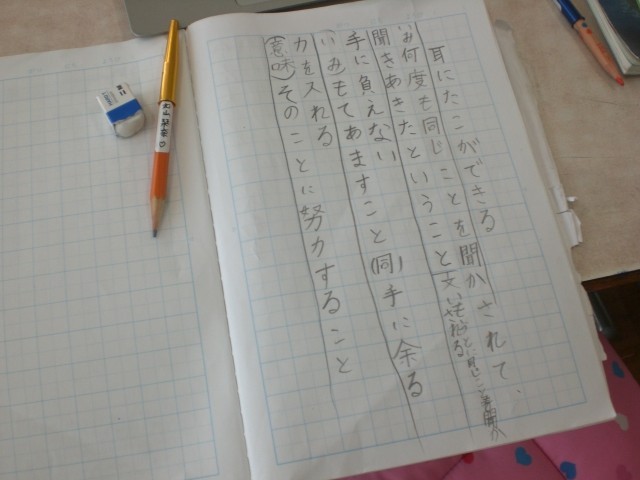 耳にたこができる
いみ何度も同じことを聞かされて
聞きあきたということ
手に負えない
(いみ)もてあますこと(同)手に余る
力を入れる
(意味)そのことに努力すること